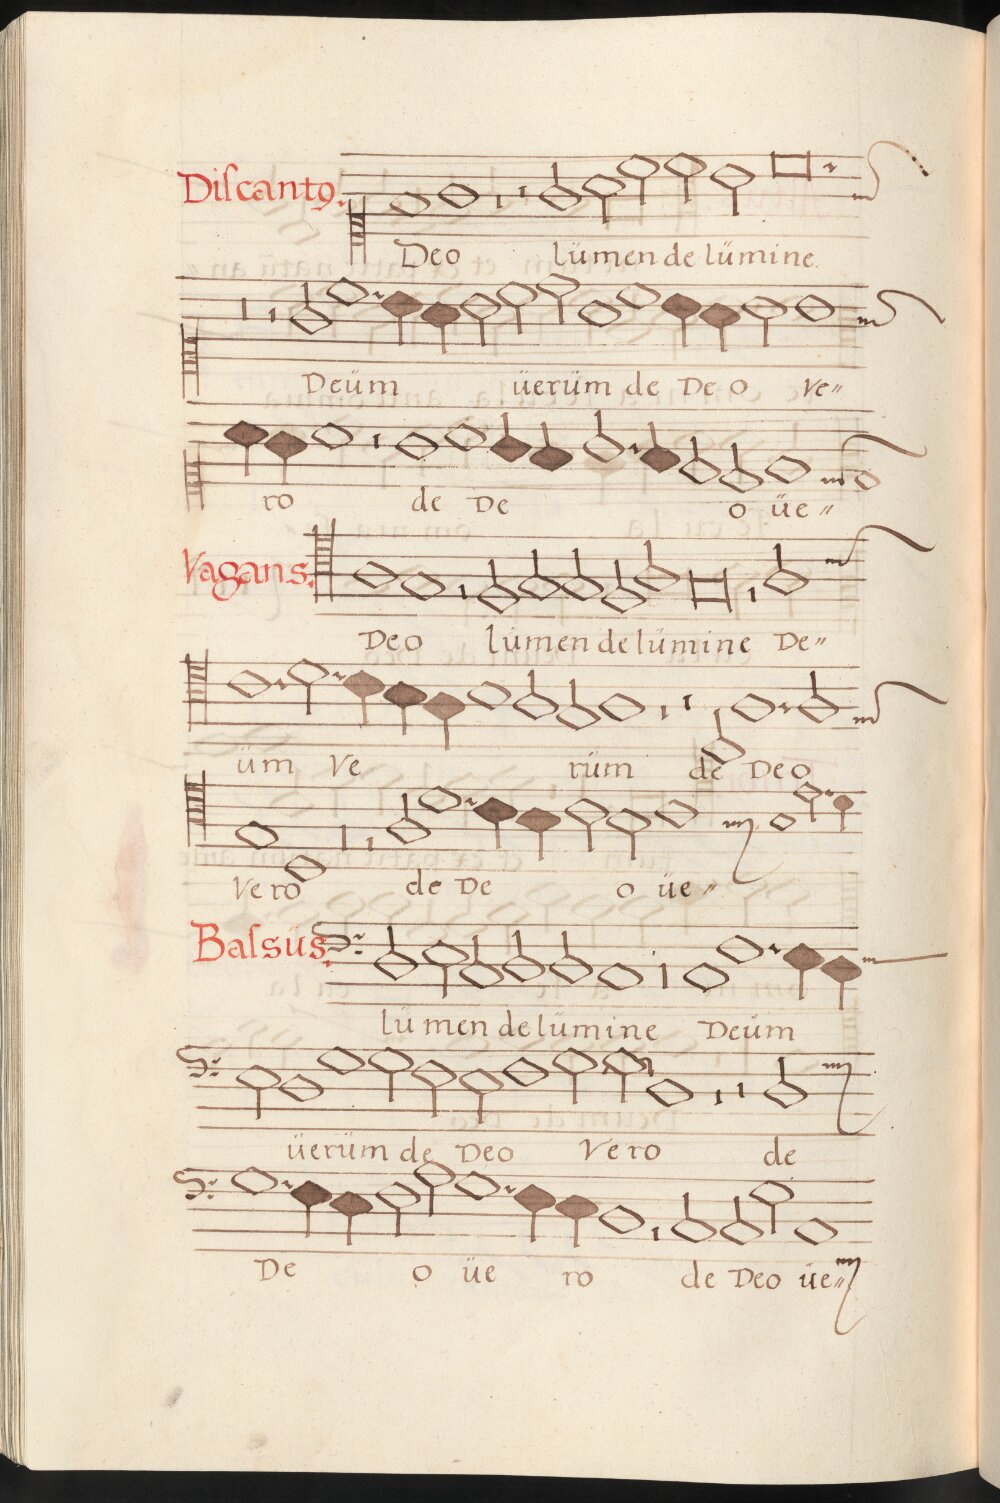 Discantꝯ.
Deo lümen de lümine.
Deüm üerüm de Deo Ve〃
ro de De o üe〃
Vagans.
Deo lümen de lümine De〃
üm Ve rüm de Deo
Vero de De o üe〃
Bassüs.
lümen de lümine Deüm
üerüm de Deo Vero de
De o üe ro de Deo üe〃